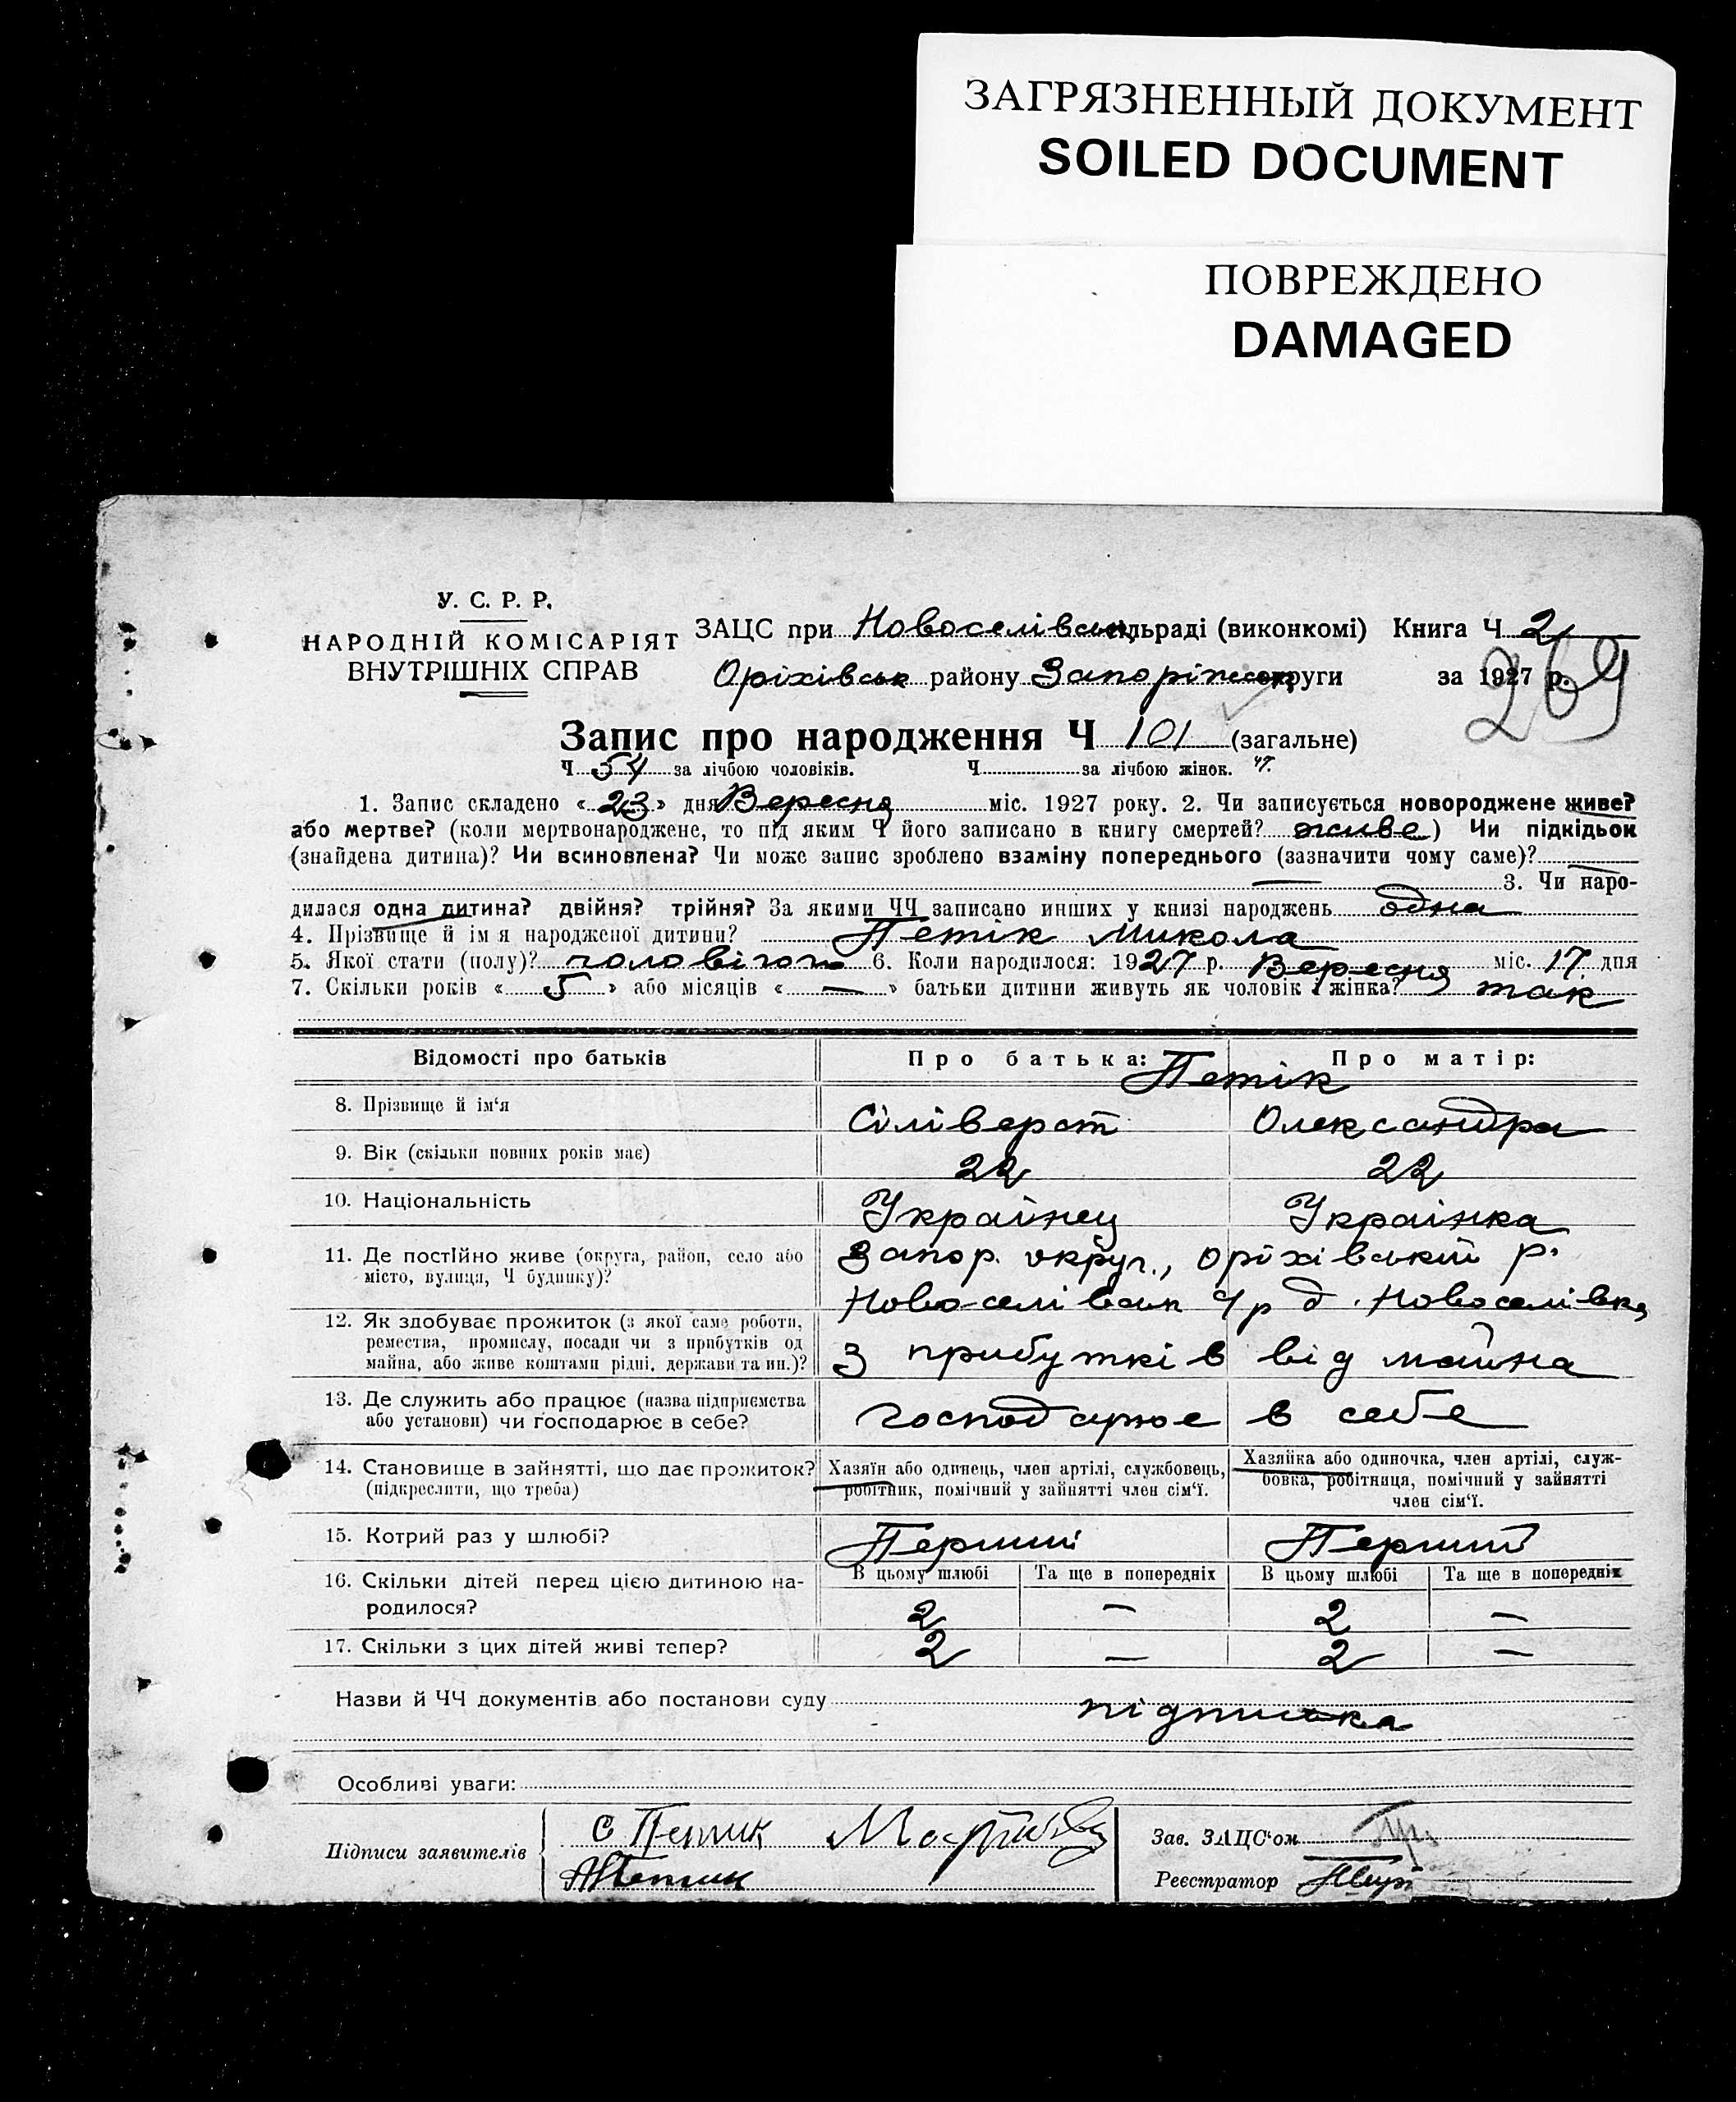 ЗАГРЯЗНЕННЫЙ ДОКУМЕНТ
SOILED DOCUMENT
ПОВРЕЖДЕНО
DAMAGED
У. С. Р. Р.
НАРОДНІЙ КОМІСАРІЯТ
ВНУТРІШНІХ СПРАВ
ЗАЦС при Новоселівськ сільраді (виконкомі) Книга Ч 2
Оріхівськ району Запоріжськ округи за 1927 р.
269
Запис про народження Ч 101 (загальне)
Ч 54 за лічбою чоловіків. Ч за лічбою жінок. 47.
1. Запис складено « 23 » дня Вересня міс. 1927 року. 2. Чи записується новороджене живе?
або мертве? (коли мертвонароджене, то під яким Ч його записано в книгу смертей? живе) Чи підкідьок
(знайдена дитина)? Чи всиновлена? Чи може запис зроблено взаміну попереднього (зазначити чому саме)? —
— 3. Чи наро-
дилася одна дитина? двійня? трійня? За якими ЧЧ записано инших у книзі народжень одна
4. Прізвище й ім я народженої дитини? Петік Микола
5. Якої стати (полу)? чоловічої 6. Коли народилося: 1927 р. Вересня міс. 17 дня
7. Скільки років « 5 » або місяців « — » батьки дитини живуть як чоловік і жінка? так
Відомості про батьків Про батька: Про матір:
Петік
8. Прізвище й ім'я Сіліверст Олександра
9. Вік (скільки повних років має) 22 22
10. Національність Українец Українка
11. Де постійно живе (округа, район, село або
місто, вулиця, Ч будинку)?
Запор. округ., Оріхівський р.
Новоселівськ с/р д. Новоселівка
12. Як здобуває прожиток (з якої саме роботи,
ремества, промислу, посади чи з прибутків од
майна, або живе коштами рідні, держави та ин.)?
З прибутків від майна
13. Де служить або працює (назва підприємства
або установи) чи господарює в себе?
господарює в себе
14. Становище в зайнятті, що дає прожиток?
(підкреслити, що треба)
Хазяїн або одинець, член артілі, службовець,
робітник, помічний у зайнятті член сім'ї.
Хазяйка або одиночка, член артілі, служ-
бовка, робітниця, помічний у зайнятті
член сім'ї.
15. Котрий раз у шлюбі? Перший Перший
16. Скільки дітей перед цією дитиною на-
родилося?
В цьому шлюбі Та ще в попередніх В цьому шлюбі Та ще в попередніх
2 — 2 —
17. Скільки з цих дітей живі тепер? 2 — 2 —
Назви й ЧЧ документів або постанови суду підписка
Особливі уваги:
Підписи заявителів
С Петик
А Петик
Зав. ЗАЦС'ом
Реєстратор